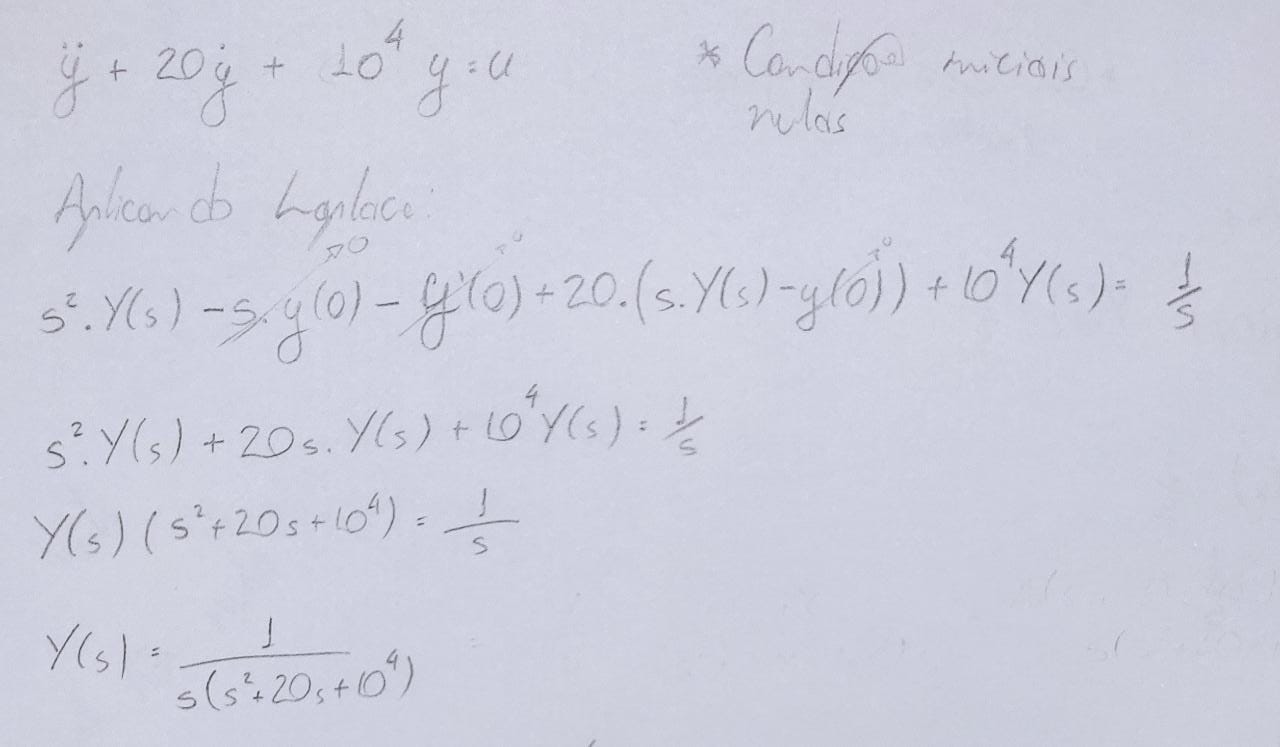 ÿ + 20ẏ + 10⁴ y = u
* Condições iniciais
nulas
Aplicando Laplace:
s². Y(s) - s. y(0) - y'(0) + 20.(s. Y(s) - y(0)) + 10⁴ Y(s) = 1/s
s². Y(s) + 20s. Y(s) + 10⁴ Y(s) = 1/s
Y(s) (s² + 20s + 10⁴) = 1/s
Y(s) = 1/s(s² + 20s + 10⁴)